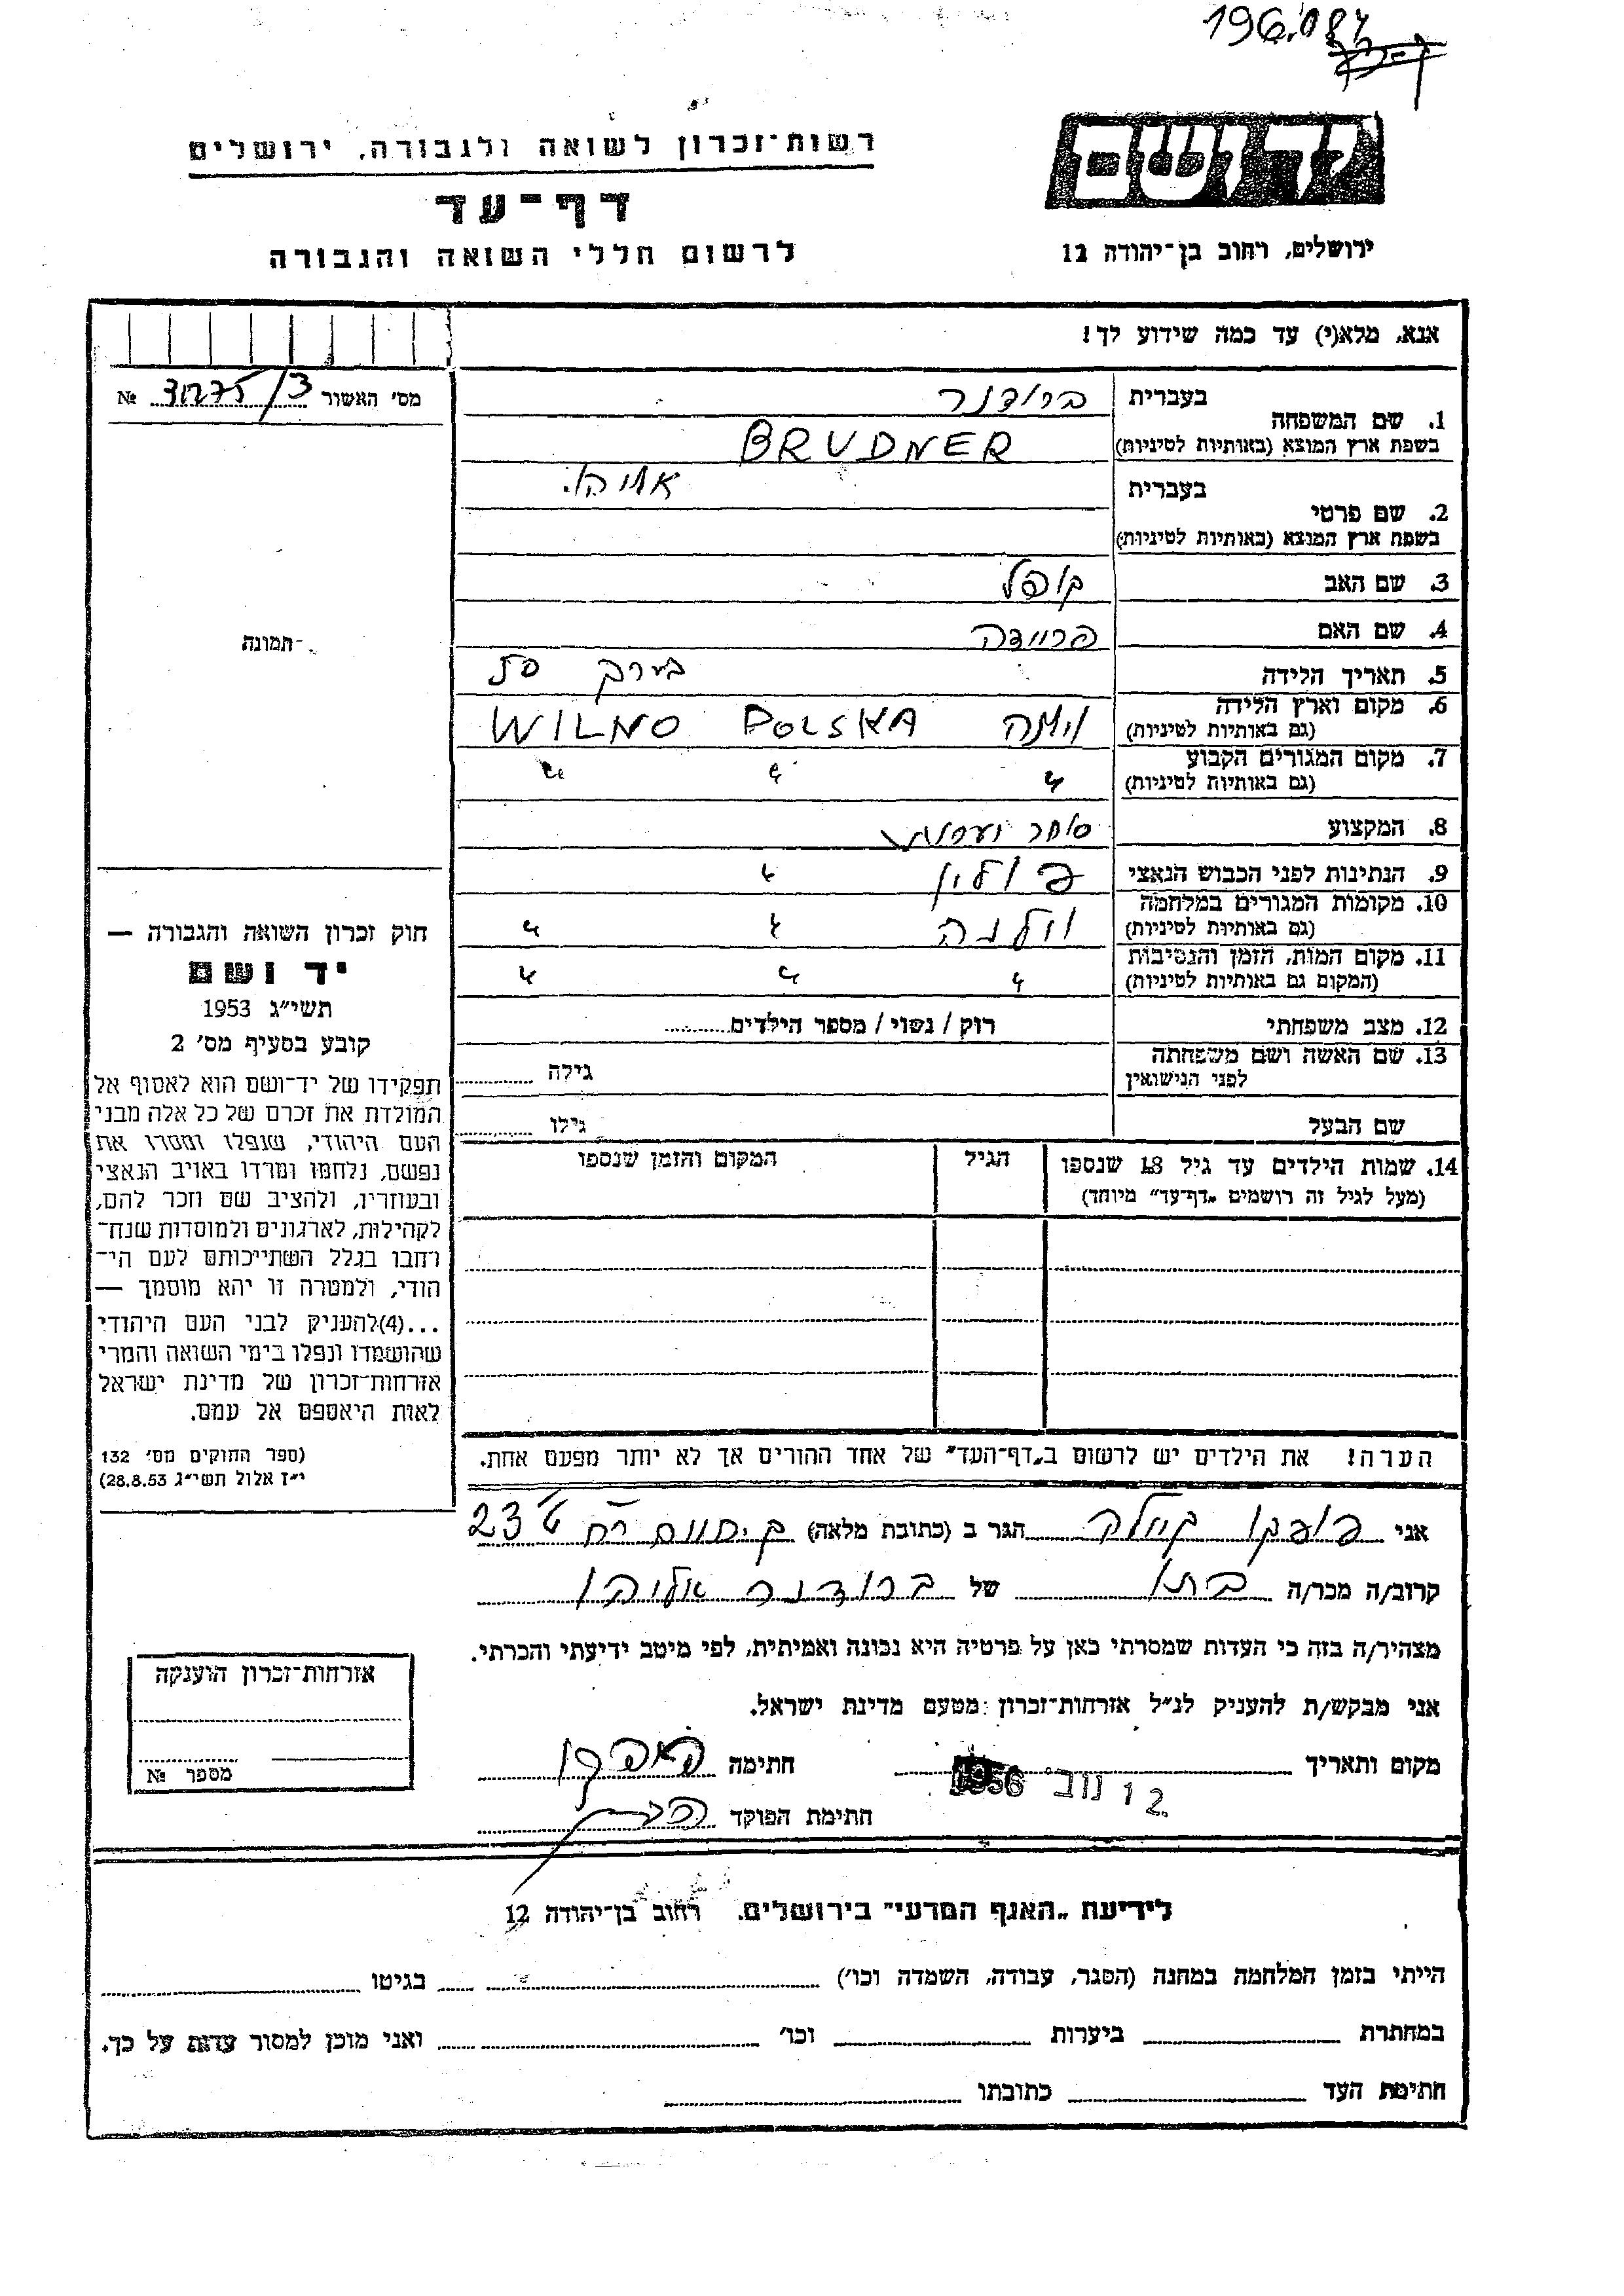 196.087
יד ושם
רשות־זכרון לשואה ולגבורה, ירושלים
דף־עד
לרשום חללי השואה והגבורה
ירושלים, רחוב בן־יהודה 12
אנא, מלא(י) עד כמה שידוע לך!
מס' האשור № 3/
1. שם המשפחה
בעברית ברודנר
בשפת ארץ המוצא (באותיות לטיניות) BRUDNER
2. שם פרטי
בעברית אליהו
בשפת ארץ המוצא (באותיות לטיניות)
3. שם האב קופל
4. שם האם פריידה
5. תאריך הלידה בערך 50
6. מקום וארץ הלידה
(גם באותיות לטיניות) וילנה WILNO POLSKA
7. מקום המגורים הקבוע
(גם באותיות לטיניות) " " "
8. המקצוע סוחר
9. הנתינות לפני הכבוש הנאצי פולין "
10. מקומות המגורים במלחמה
(גם באותיות לטיניות) וילנה " "
11. מקום המות, הזמן והנסיבות
(המקום גם באותיות לטיניות) " " "
12. מצב משפחתי רוק / נשוי / מספר הילדים
13. שם האשה ושם משפחתה
לפני הנישואין גילה
שם הבעל גילו
14. שמות הילדים עד גיל 18 שנספו
(מעל לגיל זה רושמים „דף־עד" מיוחד)
הגיל
המקום והזמן שנספו
הערה! את הילדים יש לרשום ב„דף־העד" של אחד ההורים אך לא יותר מפעם אחת.
תמונה
חוק זכרון השואה והגבורה —
יד ושם
תשי״ג 1953
קובע בסעיף מס' 2
תפקידו של יד־ושם הוא לאסוף אל
המולדת את זכרם של כל אלה מבני
העם היהודי, שנפלו ומסרו את
נפשם, נלחמו ומרדו באויב הנאצי
ובעוזריו, ולהציב שם וזכר להם,
לקהילות, לארגונים ולמוסדות שנח־
רחבו בגלל השתייכותם לעם הי־
הודי, ולמטרה זו יהא מוסמך —
...(4)להעניק לבני העם היהודי
שהושמדו ונפלו בימי השואה והמרי
אזרחות־זכרון של מדינת ישראל
לאות היאספם אל עמם.
(ספר החוקים מס' 132
י״ז אלול תשי״ג 28.8.53)
אני הגר ב (כתובת מלאה) 23
קרוב/ה מכר/ה בתו של ברודנר אליהו
מצהיר/ה בזה כי העדות שמסרתי כאן על פרטיה היא נכונה ואמיתית, לפי מיטב ידיעתי והכרתי.
אני מבקש/ת להעניק לנ״ל אזרחות־זכרון מטעם מדינת ישראל.
מקום ותאריך 12 נוב' 1956 חתימה
חתימת הפוקד
אזרחות־זכרון הוענקה
מספר №
לידיעת „האגף המדעי" בירושלים. רחוב בן־יהודה 12
הייתי בזמן המלחמה במחנה (הסגר, עבודה, השמדה וכו') בגיטו
במחתרת ביערות וכו' ואני מוכן למסור עדות על כך.
חתימת העד כתובתו